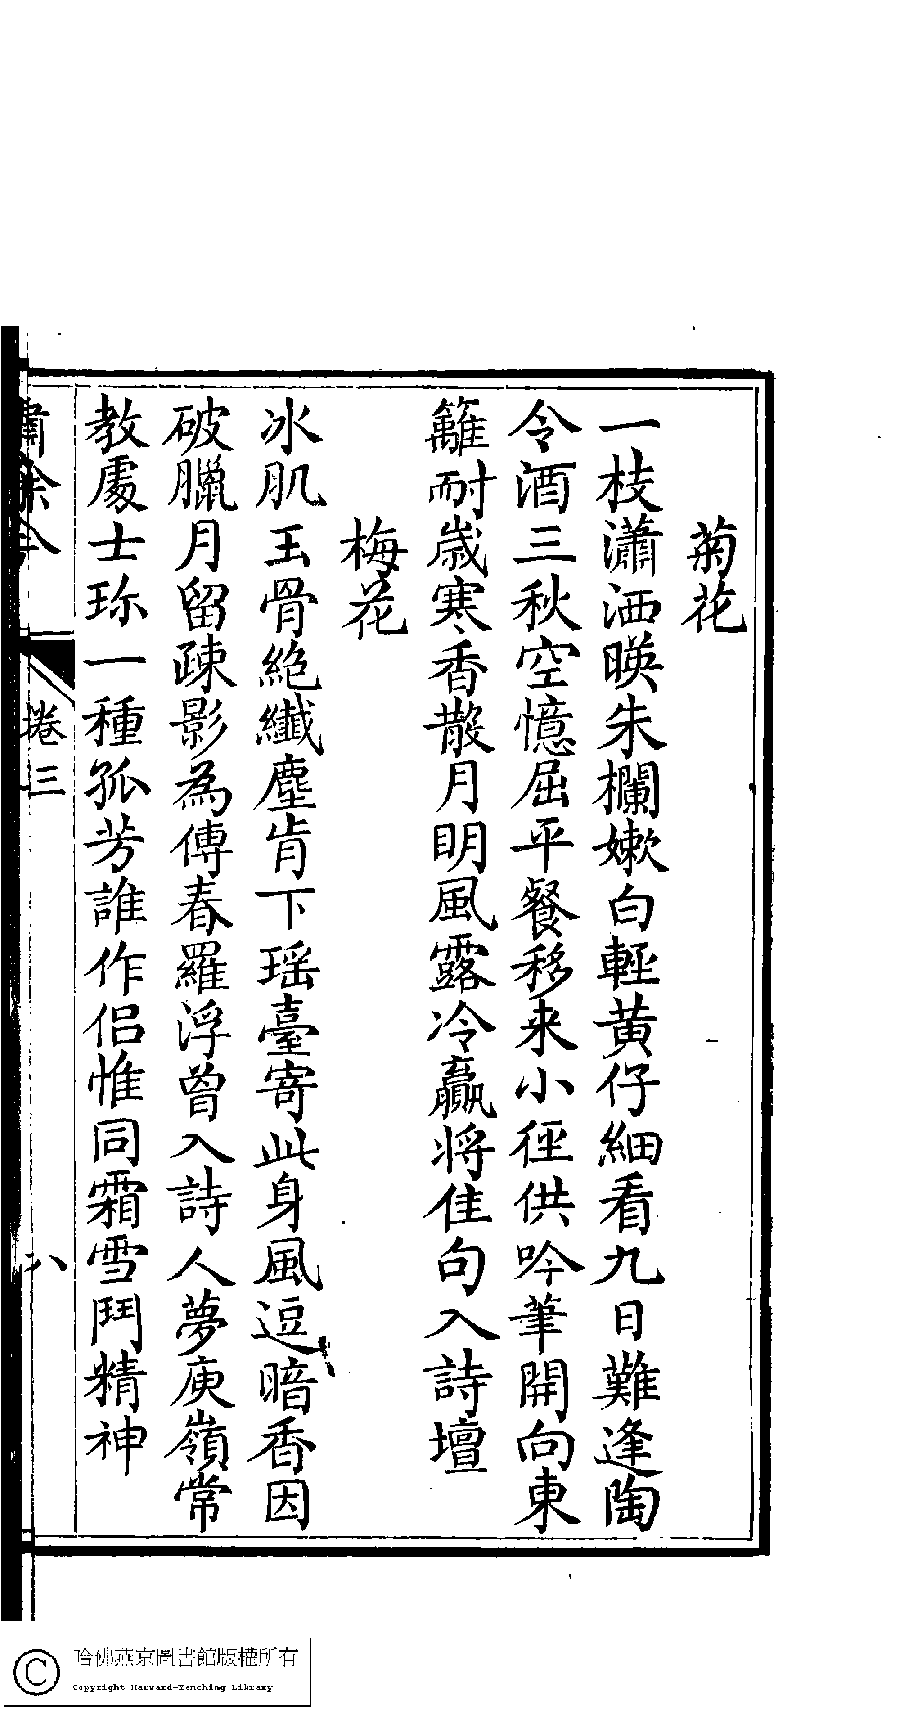 菊花
一枝瀟洒暎朱欄嫩白輕黄仔細看九日難逢陶
令酒三秋空憶屈平餐移来小徑供吟筆開向東
籬耐歳寒香散月明風露冷贏将佳句入詩壇
梅花
冰肌玉骨絶纖塵肯下瑶臺寄此身風逗暗香因
破臘月留疎影為傳春羅浮曾入詩人夢庾嶺常
教處士珎一種孤芳誰作侣惟同霜雪鬥精神
卷三
八
哈佛燕京圖書館版權所有
Copyright Harvard-Yenching Library